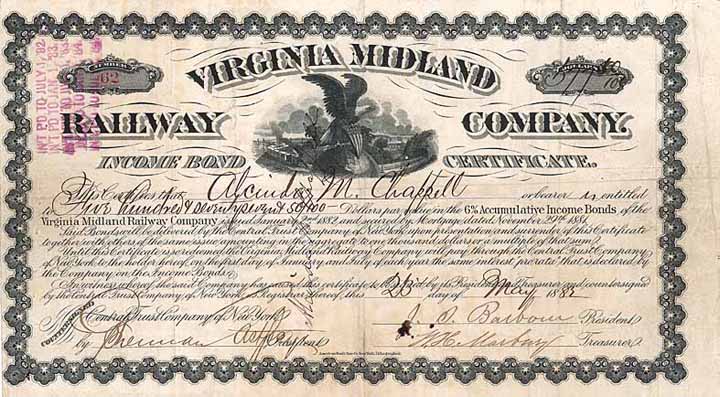 VIRGINIA MIDLAND
RAILWAY COMPANY.
INCOME BOND CERTIFICATE.
NUMBER
62
INT. P'D TO JULY 1, '82.
INT. P'D TO JAN. 1, '83.
This Certifies that Alcinda M. Chappell or bearer is entitled
to Five hundred & Seventy seven & 50/100 Dollars par value in the 6% Accumulative Income Bonds of the
Virginia Midland Railway Company issued January 2nd 1882 and secured by Mortgage dated November 29th 1881.
Said Bonds will be delivered by the Central Trust Company of New York upon presentation and surrender of this Certificate
together with others of the same issue amounting in the aggregate to one thousand dollars or a multiple of that sum.
Until this certificate is redeemed the Virginia Midland Railway Company will pay through the Central Trust Company
of New York to the holder hereof, on the first day of January and July of each year the same interest pro rata that is declared by
the Company on the Income Bonds.
In witness whereof the said Company has caused this certificate to be signed by its President and Treasurer and countersigned
by the Central Trust Company of New York Registrar hereof, this 23 day of May 1882
COUNTERSIGNED
Central Trust Company of New York
by Sherman President
J. S. Barbour President
Treasurer